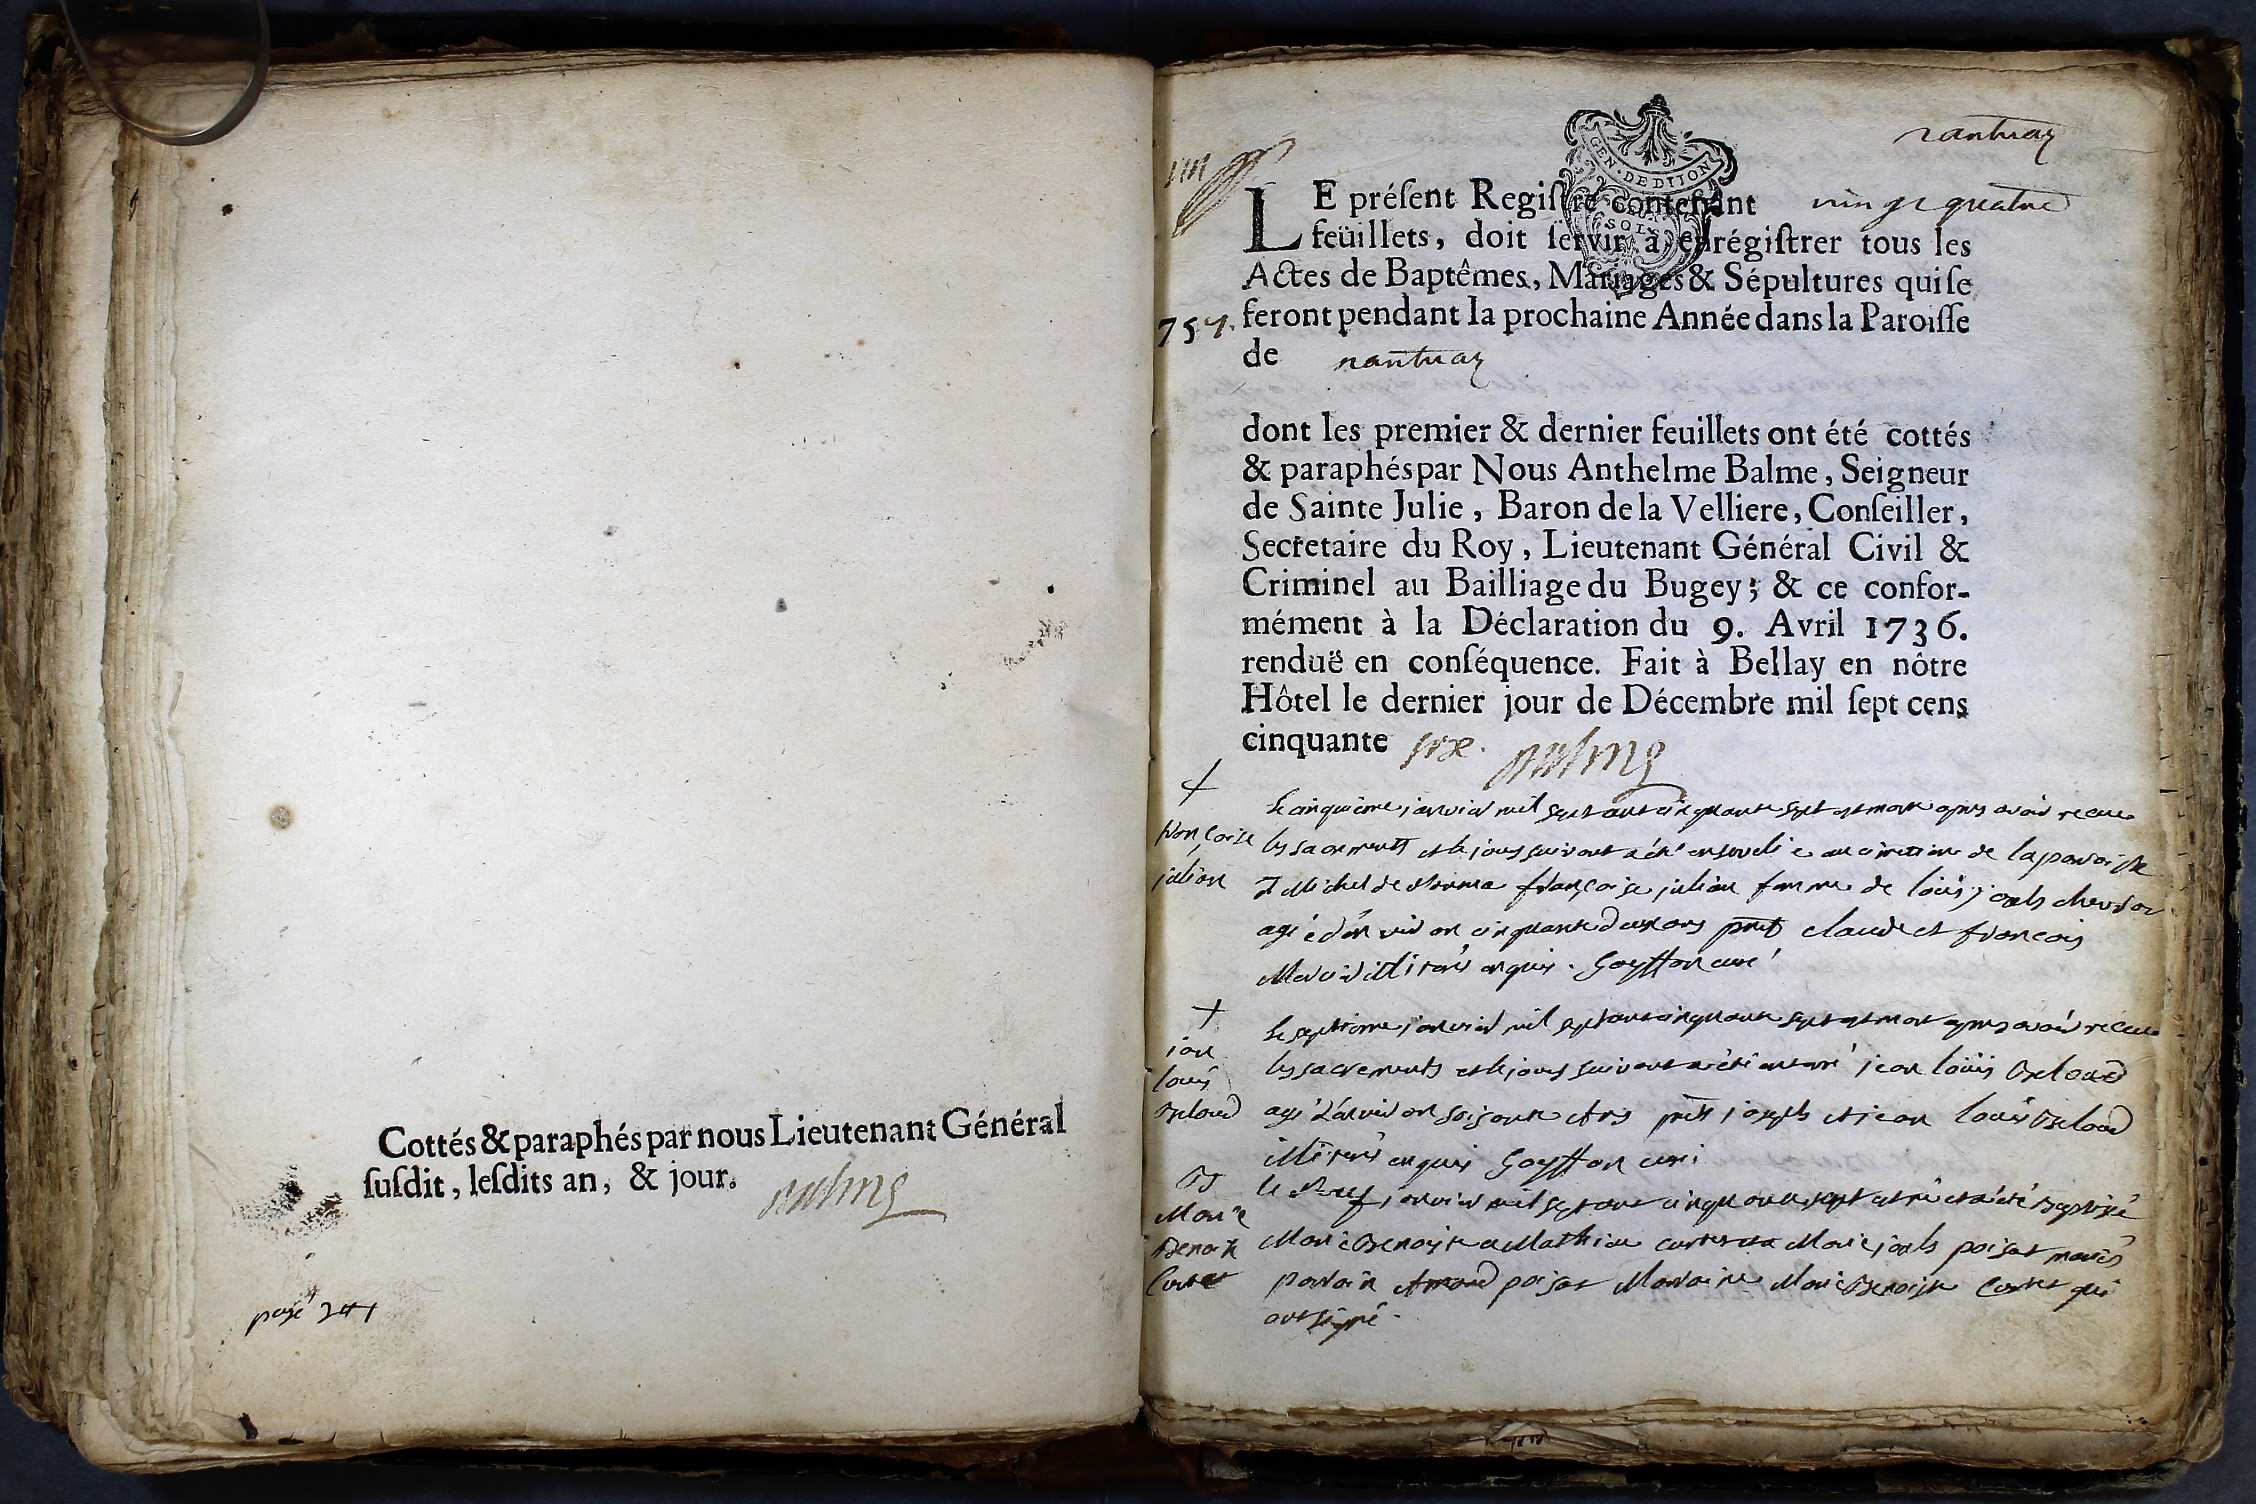 Cottés & paraphés par nous Lieutenant Général
ſuſdit, leſdits an, & jour.
page 241
nantuaz
GEN. DE DIJON
LE préſent Regiſtre contenant vingt quatre
feüillets, doit ſervir à enrégiſtrer tous les
Actes de Baptêmes, Mariages & Sépultures qui ſe
feront pendant la prochaine Année dans la Paroiſſe
757.
de nantuaz
dont les premier & dernier feuillets ont été cottés
& paraphés par Nous Anthelme Balme, Seigneur
de Sainte Julie, Baron de la Velliere, Conſeiller,
Secretaire du Roy, Lieutenant Général Civil &
Criminel au Bailliage du Bugey; & ce confor-
mément à la Déclaration du 9. Avril 1736.
renduë en conſéquence. Fait à Bellay en nôtre
Hôtel le dernier jour de Décembre mil ſept cens
cinquante six.
françoise
julian
Le cinquieme janvier mil sept cent cinquante sept est morte apres avoir receu
les sacrements et le jour suivant a été ensevelie au cimetiere de la paroisse
St Michel de nantua françoise julian femme de loüis
agée d'environ cinquante deux ans claude et francois
illiterés enquis. Goyffon curé
jean
loüis
Le septieme janvier mil sept cent cinquante sept est mort apres avoir receu
les sacrements et le jour suivant a été enterré jean loüis
agé d'environ soisante ans joseph et jean loüis
illiterés enquis Goyffon curé
Marie
Benoite
le neuf janvier mil sept cent cinquante sept est né et a été baptisé
Marie Benoiste a Mathieu Marie poisat mariés
parrain poisat Marraine Marie Benoiste qui
ont signé.